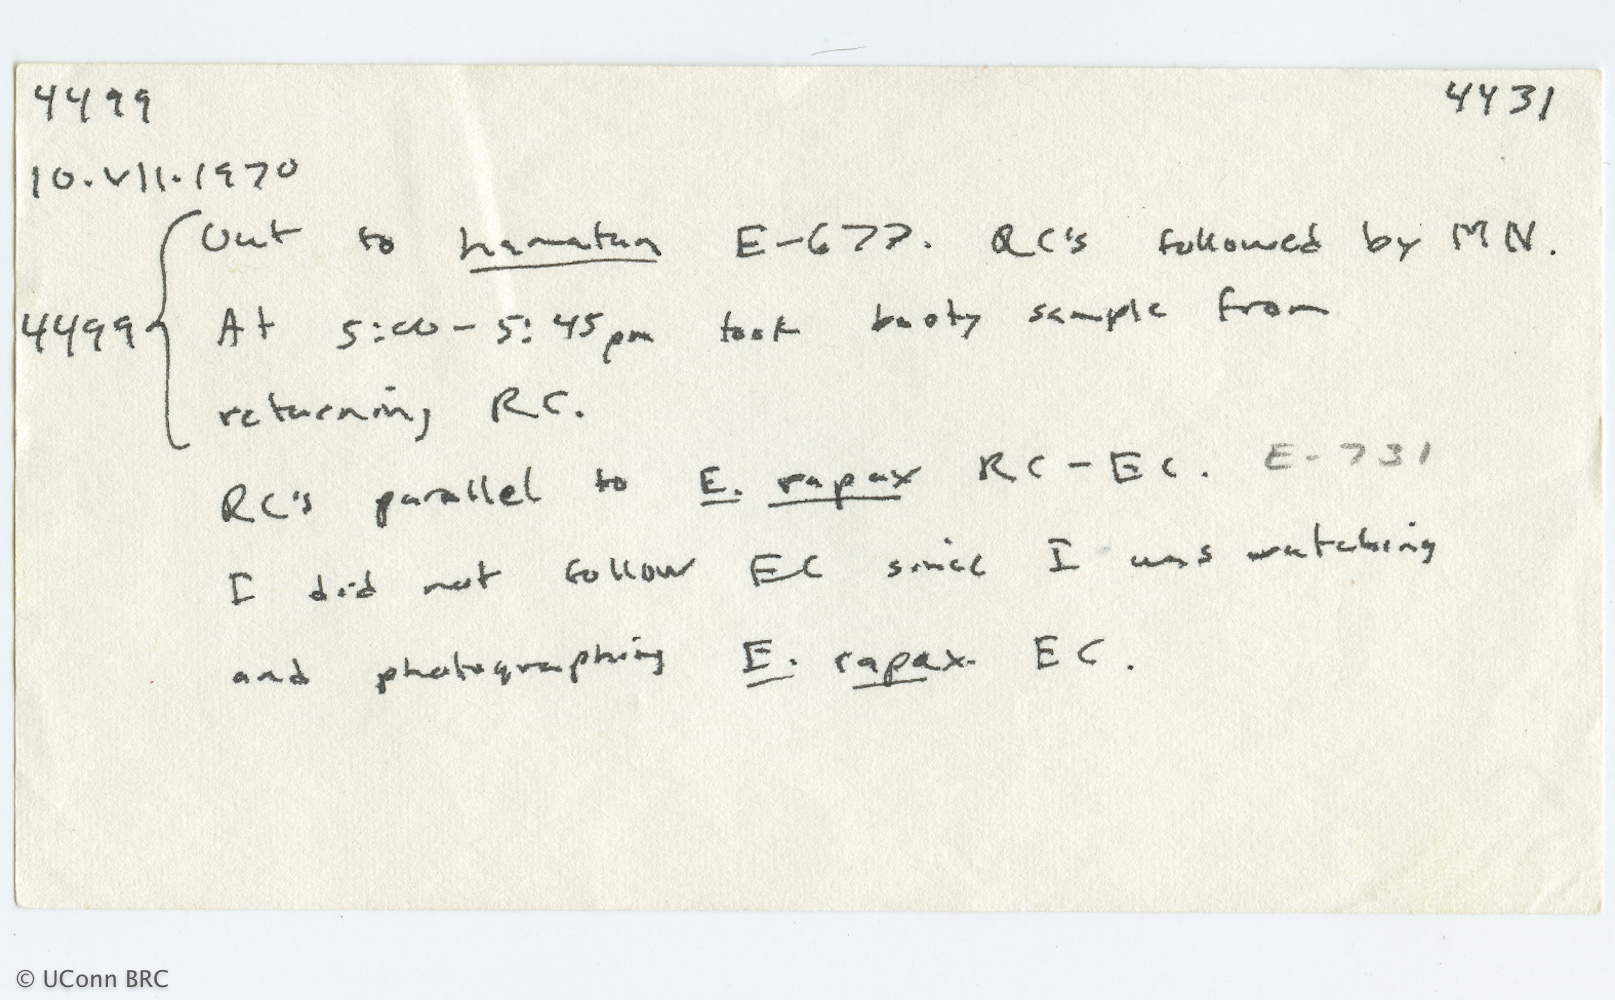 4499 4431
10.VII.1970
Out to hamatum E-677. RC's followed by MN.
4499 { At 5:00-5:45pm took booty sample from
returning RC.
RC's parallel to E. rapax RC-EC. E-731
I did not follow EC since I was watching
and photographing E. rapax. EC.
© UConn BRC